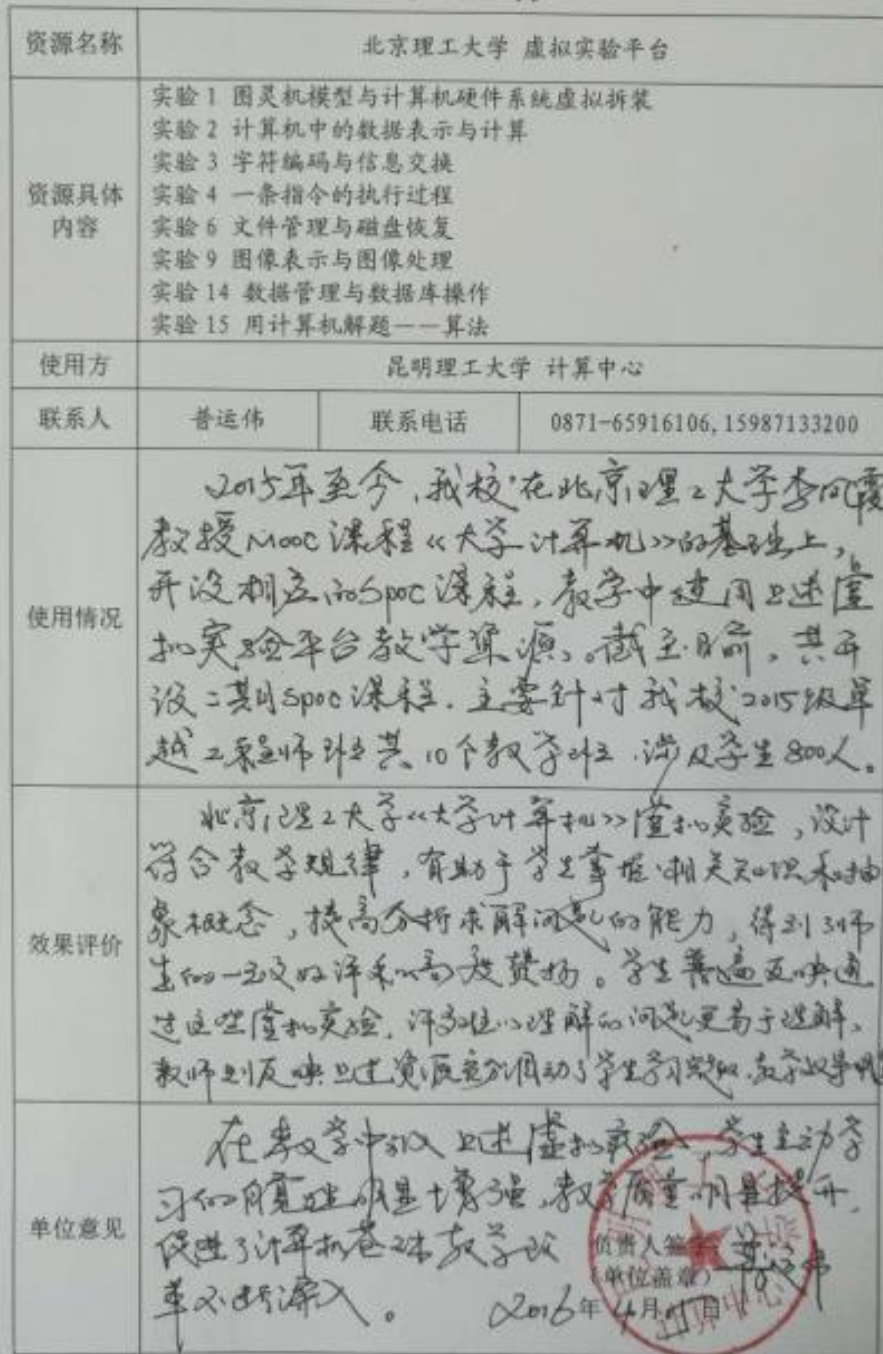 资源名称 北京理工大学 虚拟实验平台
资源具体内容
实验 1 图灵机模型与计算机硬件系统虚拟拆装
实验 2 计算机中的数据表示与计算
实验 3 字符编码与信息交换
实验 4 一条指令的执行过程
实验 6 文件管理与磁盘恢复
实验 9 图像表示与图像处理
实验 14 数据管理与数据库操作
实验 15 用计算机解题——算法
使用方 昆明理工大学 计算中心
联系人 普运伟 联系电话 0871-65916106, 15987133200
使用情况
2015年至今,我校在北京理工大学李凤霞
教授MOOC课程《大学计算机》的基础上,
开设相应的SPOC课程,教学中使用上述虚
拟实验平台教学资源。截至目前,共开
设二期SPOC课程,主要针对我校2015级卓
越工程师班共10个教学班,涉及学生800人。
效果评价
北京理工大学《大学计算机》虚拟实验,设计
符合教学规律,有助于学生掌握相关知识和抽
象概念,提高分析求解问题的能力,得到了师
生的一致好评和高度赞扬。学生普遍反映通
过这些虚拟实验,许多难以理解的问题更易于理解。
教师则反映上述资源充分调动了学生学习,教学效果明
单位意见
在教学中引入上述虚拟实验,学生主动学
习的自觉性明显增强,教学质量明显提升,
促进了计算机基础教学改
革不断深入。
负责人签字 普运伟
(单位盖章)
2016年4月 日